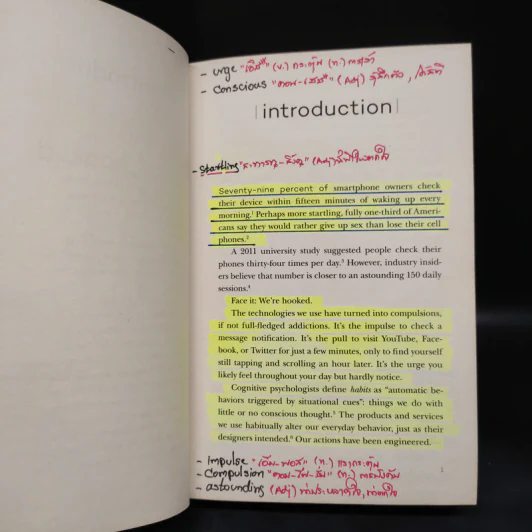 - urge "เอิจ" (v.) กระตุ้น (n.)
- conscious (Adj) รู้สึกตัว,
introduction
- startling (Adj)
Seventy-nine percent of smartphone owners check
their device within fifteen minutes of waking up every
morning.¹ Perhaps more startling, fully one-third of Ameri-
cans say they would rather give up sex than lose their cell
phones.²
A 2011 university study suggested people check their
phones thirty-four times per day.³ However, industry insid-
ers believe that number is closer to an astounding 150 daily
sessions.⁴
Face it: We're hooked.
The technologies we use have turned into compulsions,
if not full-fledged addictions. It's the impulse to check a
message notification. It's the pull to visit YouTube, Face-
book, or Twitter for just a few minutes, only to find yourself
still tapping and scrolling an hour later. It's the urge you
likely feel throughout your day but hardly notice.
Cognitive psychologists define habits as "automatic be-
haviors triggered by situational cues": things we do with
little or no conscious thought.⁵ The products and services
we use habitually alter our everyday behavior, just as their
designers intended.⁶ Our actions have been engineered.
- impulse (n.) แรงกระตุ้น
- Compulsion (n.) การบังคับ
- astounding (Adj) น่าประหลาดใจ, น่าตกใจ
1